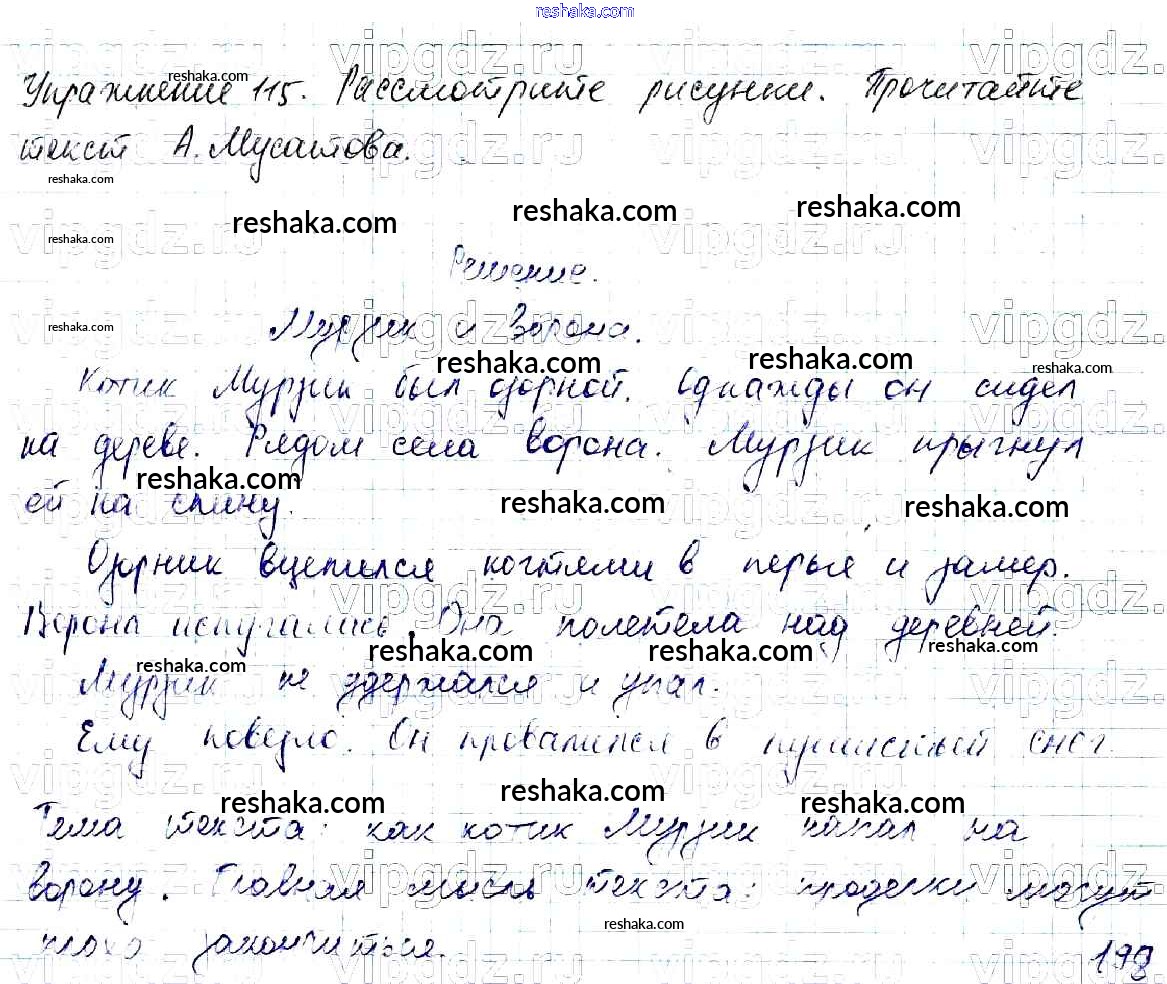 reshaka.com
Упражнение 115. Рассмотрите рисунки. Прочитайте
текст А. Мусатова.
Решение.
Мурзик и Ворона.
Котик Мурзик был озорной. Однажды он сидел
на дереве. Рядом села ворона. Мурзик прыгнул
ей на спину.
Озорник вцепился когтями в перья и замер.
Ворона испугалась. Она полетела над деревней.
Мурзик не удержался и упал.
Ему повезло. Он провалился в пушистый снег.
Тема текста: как котик Мурзик напал на
ворону. Главная мысль текста: проделки могут
плохо закончиться.
198